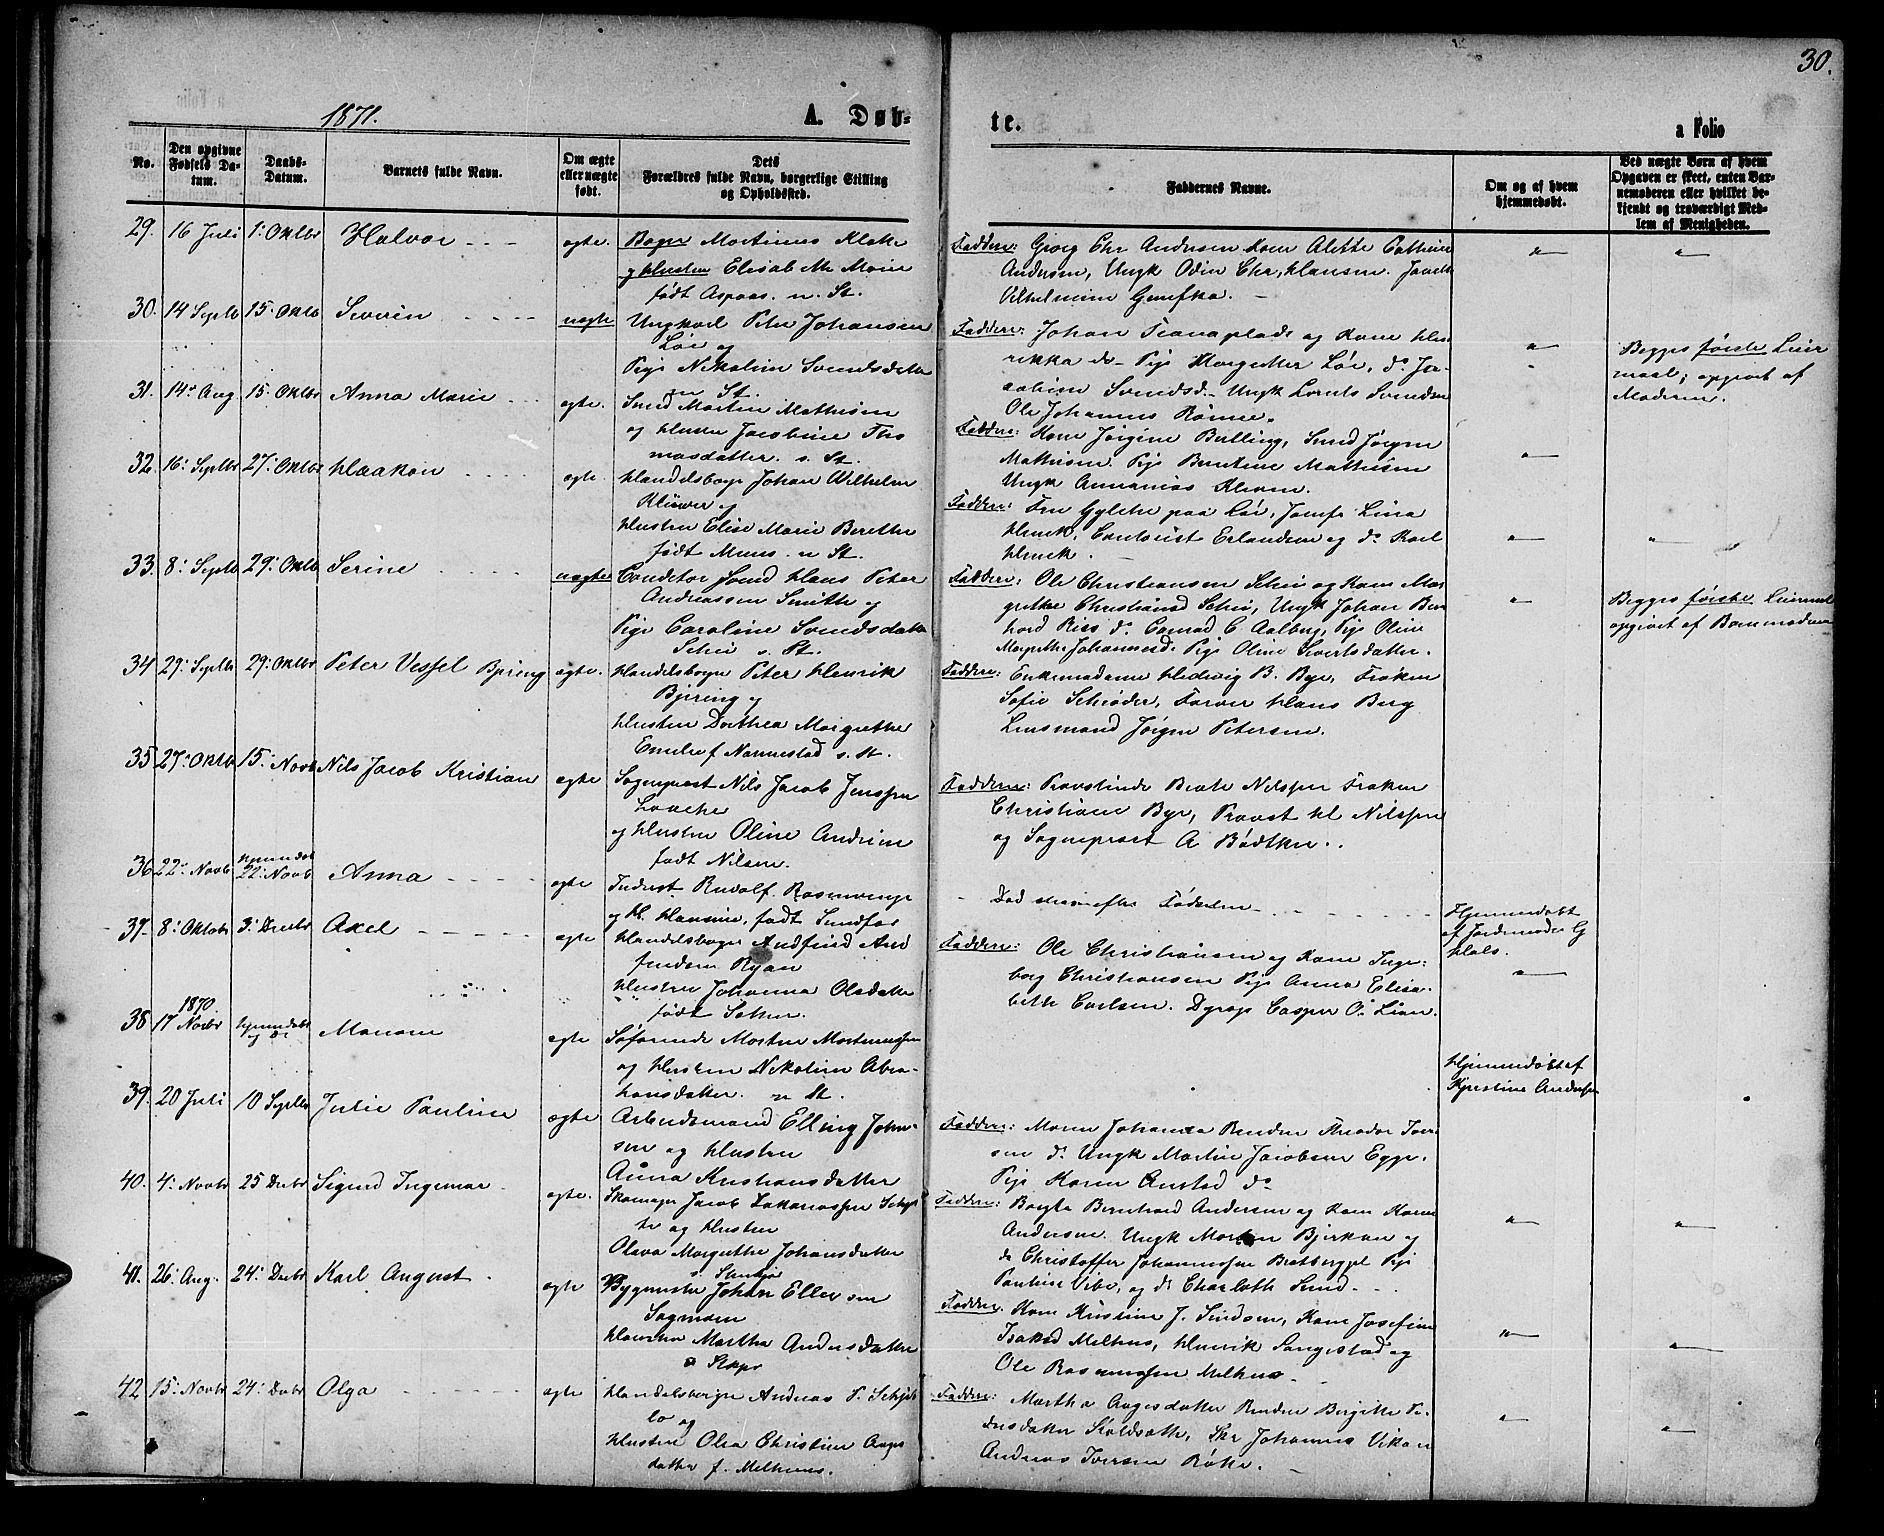 30.
1871.
A. Døb-
te.
a Folio
No.
Den opgivne Fødsels Da-
tum.
Daabs-
Datum.
Barnets fulde Navn.
Om ægte
eller uægte
født.
Dets
Forældres fulde Navn, borgerlige Stilling
og Opholdssted.
Faddernes Navne.
Om og af hvem
hjemmedøbt.
Ved uægte Børn af hvem
Opgaven er skeet, enten Bar-
nemoderen eller hvilket be-
kjendt og troværdigt Med-
lem af Menigheden.
29. 16 Juli 1: Oktbr Halvor ægte. Bager Martinus Klæke
og Hustru Elisab M. Marie
født Aspaas. n. St.
Faddere: Georg Chr Andersen Kone Alette Cathrine
Andersen, Ungk Odin Chr. Hansen.
Vilhelmine
30. 14 Septb 15: Oktb Severin uægte Ungkarl Peter Johansen
Løe og
Pige Nikoline Svendsdatter
n St.
Faddere: Johan Tranaplads og Kone Hen-
rikka do Pige Margrethe Løe, do Ja-
cobine Svendsd. Ungk Lorents Svendsen
Ole Johannes Rønne.
Begges første Leier
maal; opgivet af
Moderen.
31. 14 Aug 15. Oktbr Anna Marie ægte. Smed Martin Mathisen
og Hustru Jacobine Tho
masdatter. s. St.
Faddere: Kone Jørgine Bulling, Smed Jørgen
Mathisen. Pige Berntine Mathisen
Ungk Annanias
32. 16: Septbr 27: Oktbr Haakon ægte. Handelsborger Johan Wilhelm
Klüwer og
Hustru Elise Marie Berethe
født Muus. n St.
Faddere: Fru paa Løe, Jomfr Lina
Erlandsen og do Karl
33. 8: Septb 29: Oktb Serine uægte Conditor Svend Hans Peter
Andreassen Smith og
Pige Caroline Svendsdatter
Schei s. St.
Faddere: Ole Christiansen Schei og Kone Mar
grethe Christiansd Schei, Ungk Johan Bern
hard Riis do. Conrad C. Aalberg, Pige Oline
Margrethe Johannesd. Pige Oline Sivertsdatter.
Begges første Leiermal
opgivet af Barnemoderen
34 29: Septbr 29: Oktbr Peter Vessel Bjering ægte. Handelsborger Peter Henrik
Bjering og
Hustru Dorthea Margrethe
Emilie f. Nannestad s. St.
Faddere: Enkemadame Hedevig B. Bye, Frøken
Sofie Schrøder, Farver Hans Berg
Lensmand Jørgen Petersen.
35 27: Oktbr 15: Novb Nils Jacob Kristian ægte Sogneprest Nils Jacob Jenssen
Laache
og Hustru Oline Andrine
født Nilsen.
Faddere: Provstinde Beate Nilssen Frøken
Christiane Bye, Provst H Nilssen
og Sogneprest A Bødtker.
36 22: Novb Hjemmedøbt
22: Novb Anna ægte Indrest Rudolf Rosenvinge
og H. Hansine, født Sundfør
Død strax efter Fødselen
Hjemmedøbt
af Jordemoder G
Hals.
37. 8: Oktobr 3: Decbr Axel ægte Handelsborger Andfind And
findsen Ryan
Hustru Johanna Olsdatter
født
Faddere: Ole Christiansen og Kone Inge-
borg Christiansen Pige Anna Elisa-
beth Carlsen. Casper O. Lian.
38 1870.
17 Novbr Hjemmedøbt
ægte Søfarende Morten Mortensen
og Hustru Nikoline Abra
hamsdatter. n St.
Hjemmedøbt af
Kjerstine Andersen
39. 20 Juli 10 Septbr Julie Pauline ægte Arbeidsmand Elling John-
sen og Hustru
Anna Kristiansdatter
Faddere: Maren Johanna Theodor Iver-
sen do Ungk Martin Jacobsen Egge.
Pige Karen do
40. 4: Novbr 25 Decbr Sigurd Ingemar ægte. Skomager Jacob Zakariassen
og Hustru
Olava Margrethe Johansdatter
s. Stenkjer
Faddere: Bernhard Andersen og Kone Karen
Andersen. Ungk Morten Bjerkan og
do Christoffer Johannessen Bratberg, Pige
Pauline Vibe, og do Charloth Sund
41. 26: Aug. 24: Decbr Karl August ægte Bygmester Johan Ellersen
Sagmoen
Hustru Martha Andersdatter
Faddere. Kone Kristine J. Kone Josefine
Isaksd Melhus, Henrik Langestad og
Ole Rasmussen Melhus
42 15: Novbr 24: Decbr Olga ægte Handelsborger Andreas P. Schjef
lo og
Hustru Olea Christine Aages
datter f. Melhuus.
Faddere: Martha Aagesdatter Bergitte Pe-
dersdatter Johannes Vikan
Andreas Iversen